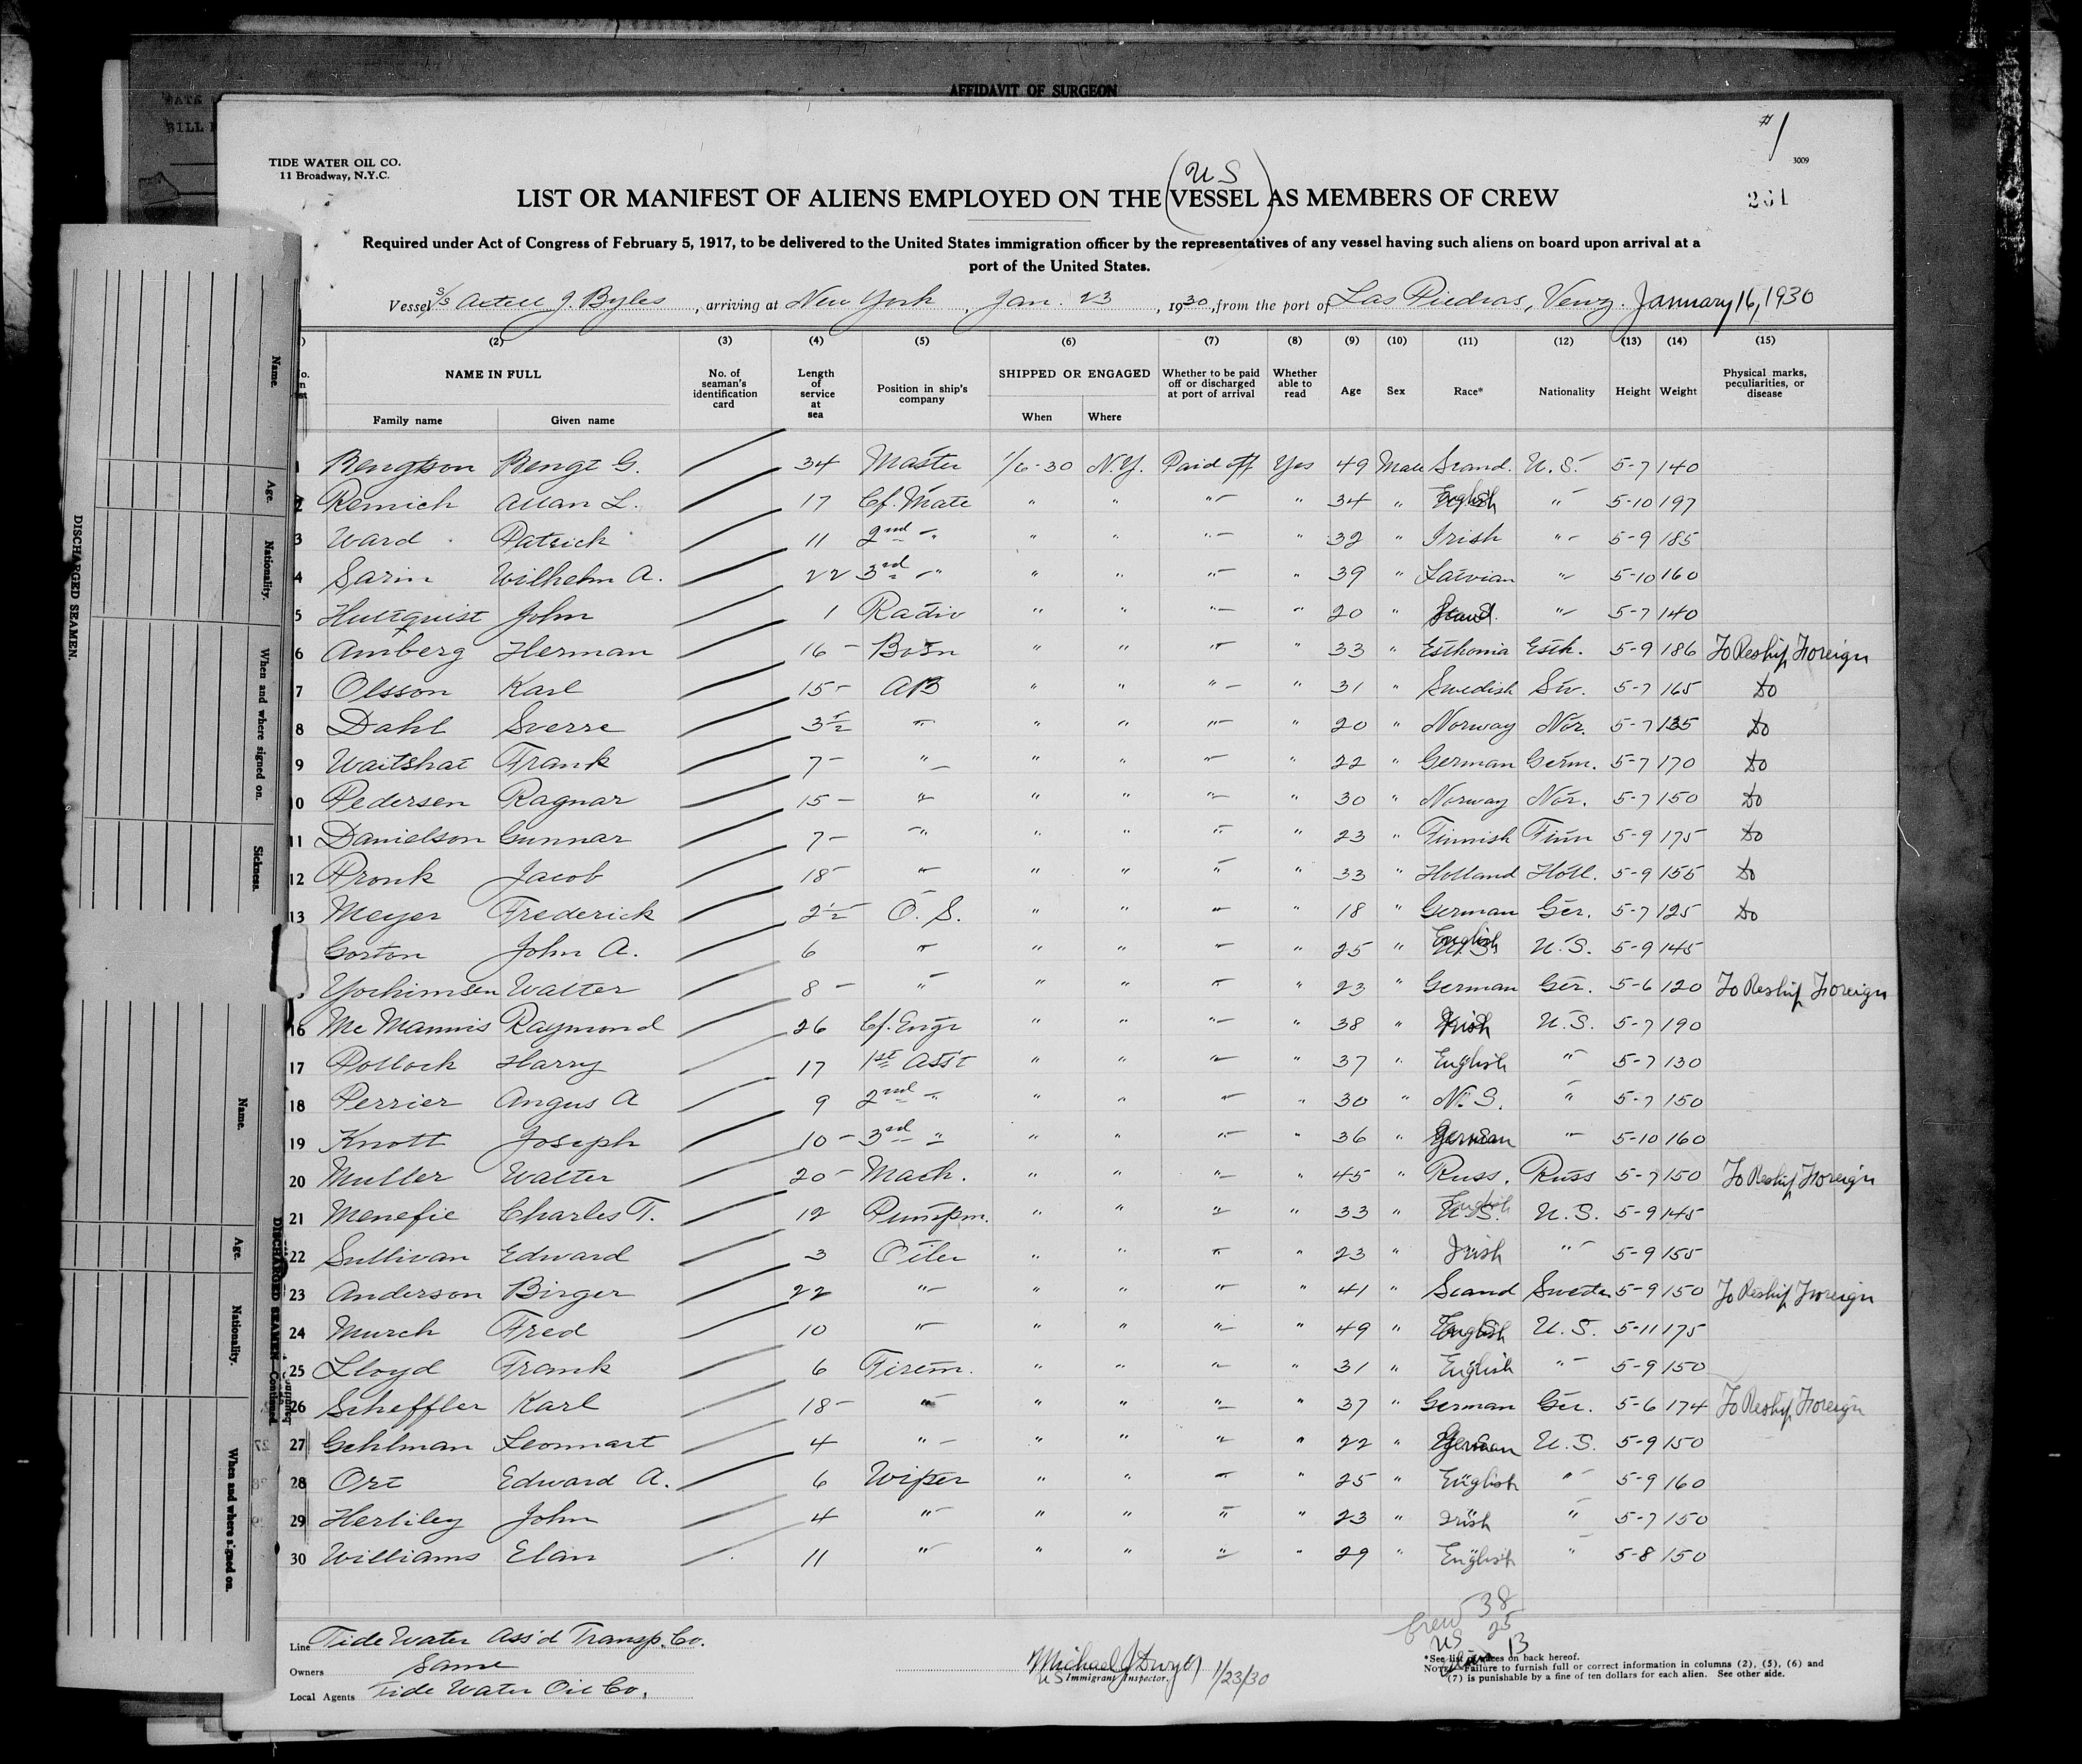 AFFIDAVIT OF SURGEON
# 1
TIDE WATER OIL CO.
11 Broadway, N.Y.C.
3009
261
US
LIST OR MANIFEST OF ALIENS EMPLOYED ON THE (VESSEL) AS MEMBERS OF CREW
Required under Act of Congress of February 5, 1917, to be delivered to the United States immigration officer by the representatives of any vessel having such aliens on board upon arrival at a
port of the United States.
Vessel S/S Axtell J. Byles, arriving at New York, Jan. 23, 1930, from the port of Las Piedras, Venz. January 16, 1930
(2) (3) (4) (5) (6) (7) (8) (9) (10) (11) (12) (13) (14) (15)
NAME IN FULL Family name Given name No. of seaman's identification card Length of service at sea Position in ship's company SHIPPED OR ENGAGED When Where Whether to be paid off or discharged at port of arrival Whether able to read Age Sex Race* Nationality Height Weight Physical marks, peculiarities, or disease
1 Bengtson Bengt G. 34 Master 1/6-30 N.Y. Paid off Yes 49 Male Scand. U.S. 5-7 140
2 Remich Allan L. 17 Cf. Mate " " " " 34 " English " 5-10 197
3 Ward Patrick 11 2nd " " " " " 32 " Irish " 5-9 185
4 Sarin Wilhelm A. 22 3rd " " " " " 39 " Latvian " 5-10 160
5 Hultquist John 1 Radio " " " " 20 " Scand. " 5-7 140
6 Amberg Herman 16 Bosn " " " " 33 " Esthonia Esth. 5-9 186 To Reship Foreign
7 Olsson Karl 15 AB " " " " 31 " Swedish Sw. 5-7 165 Do
8 Dahl Sverre 3 1/2 " " " " " 20 " Norway Nor. 5-7 135 Do
9 Waitshat Frank 7 " " " " " 22 " German Germ. 5-7 170 Do
10 Pedersen Ragnar 15 " " " " " 30 " Norway Nor. 5-7 150 Do
11 Danielson Gunnar 7 " " " " " 23 " Finnish Finn 5-9 175 Do
12 Pronk Jacob 18 " " " " " 33 " Holland Holl. 5-9 155 Do
13 Meyer Frederick 2 1/2 O.S. " " " " 18 " German Ger. 5-7 125 Do
Gorton John A. 6 " " " " " 25 " English U.S. 5-9 145
Yochimsen Walter 8 " " " " " 23 " German Ger. 5-6 120 To Reship Foreign
16 Mc Mannis Raymond 26 Cf. Engr " " " " 38 " Irish U.S. 5-7 190
17 Pollock Harry 17 1st Ass't " " " " 37 " English " 5-7 130
18 Perrier Angus A 9 2nd " " " " " 30 " N.S. " 5-7 150
19 Knott Joseph 10 3rd " " " " " 36 " German " 5-10 160
20 Muller Walter 20 Mach. " " " " 45 " Russ. Russ 5-7 150 To Reship Foreign
21 Menefie Charles T. 12 Pumpm. " " " " 33 " English U.S. 5-9 145
22 Sullivan Edward 3 Oiler " " " " 23 " Irish " 5-9 155
23 Anderson Birger 22 " " " " " 41 " Scand Sweden 5-9 150 To Reship Foreign
24 Murch Fred 10 " " " " " 49 " English U.S. 5-11 175
25 Lloyd Frank 6 Firem. " " " " 31 " English " 5-9 150
26 Scheffler Karl 18 " " " " " 37 " German Ger. 5-6 174 To Reship Foreign
27 Gehlman Leonnart 4 " " " " " 22 " German U.S. 5-9 150
28 Ort Edward A. 6 Wiper " " " " 25 " English " 5-9 160
29 Herliley John 4 " " " " " 23 " Irish " 5-7 150
30 Williams Elan 11 " " " " " 29 " English " 5-8 150
Crew 38
US 25
13
Line Tide Water Ass'd Transp. Co.
Owners Same
Local Agents Tide Water Oil Co.
Michael J Dwyer 1/23/30
US Immigrant Inspector.
*See list of races on back hereof.
Note.—Failure to furnish full or correct information in columns (2), (5), (6) and
(7) is punishable by a fine of ten dollars for each alien. See other side.
DISCHARGED SEAMEN.
Name.
Age.
Nationality.
When and where signed on.
Sickness.
DISCHARGED SEAMEN Continued.
Name.
Age.
Nationality.
When and where signed on.